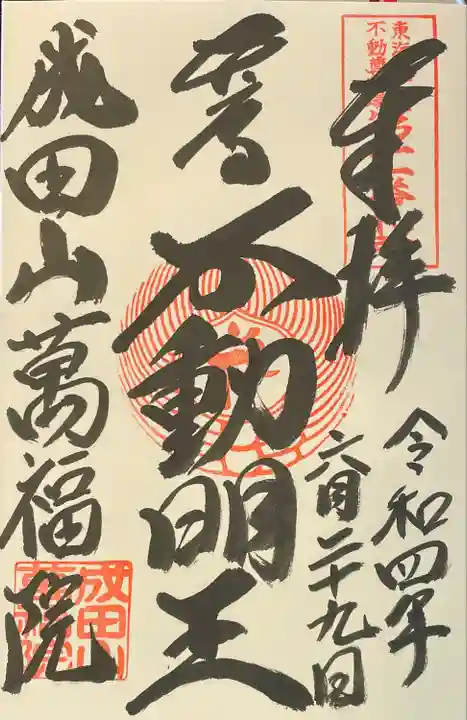 奉拝
令和四年
六月二十九日
尊
不動明王
成田山萬福院
成田山